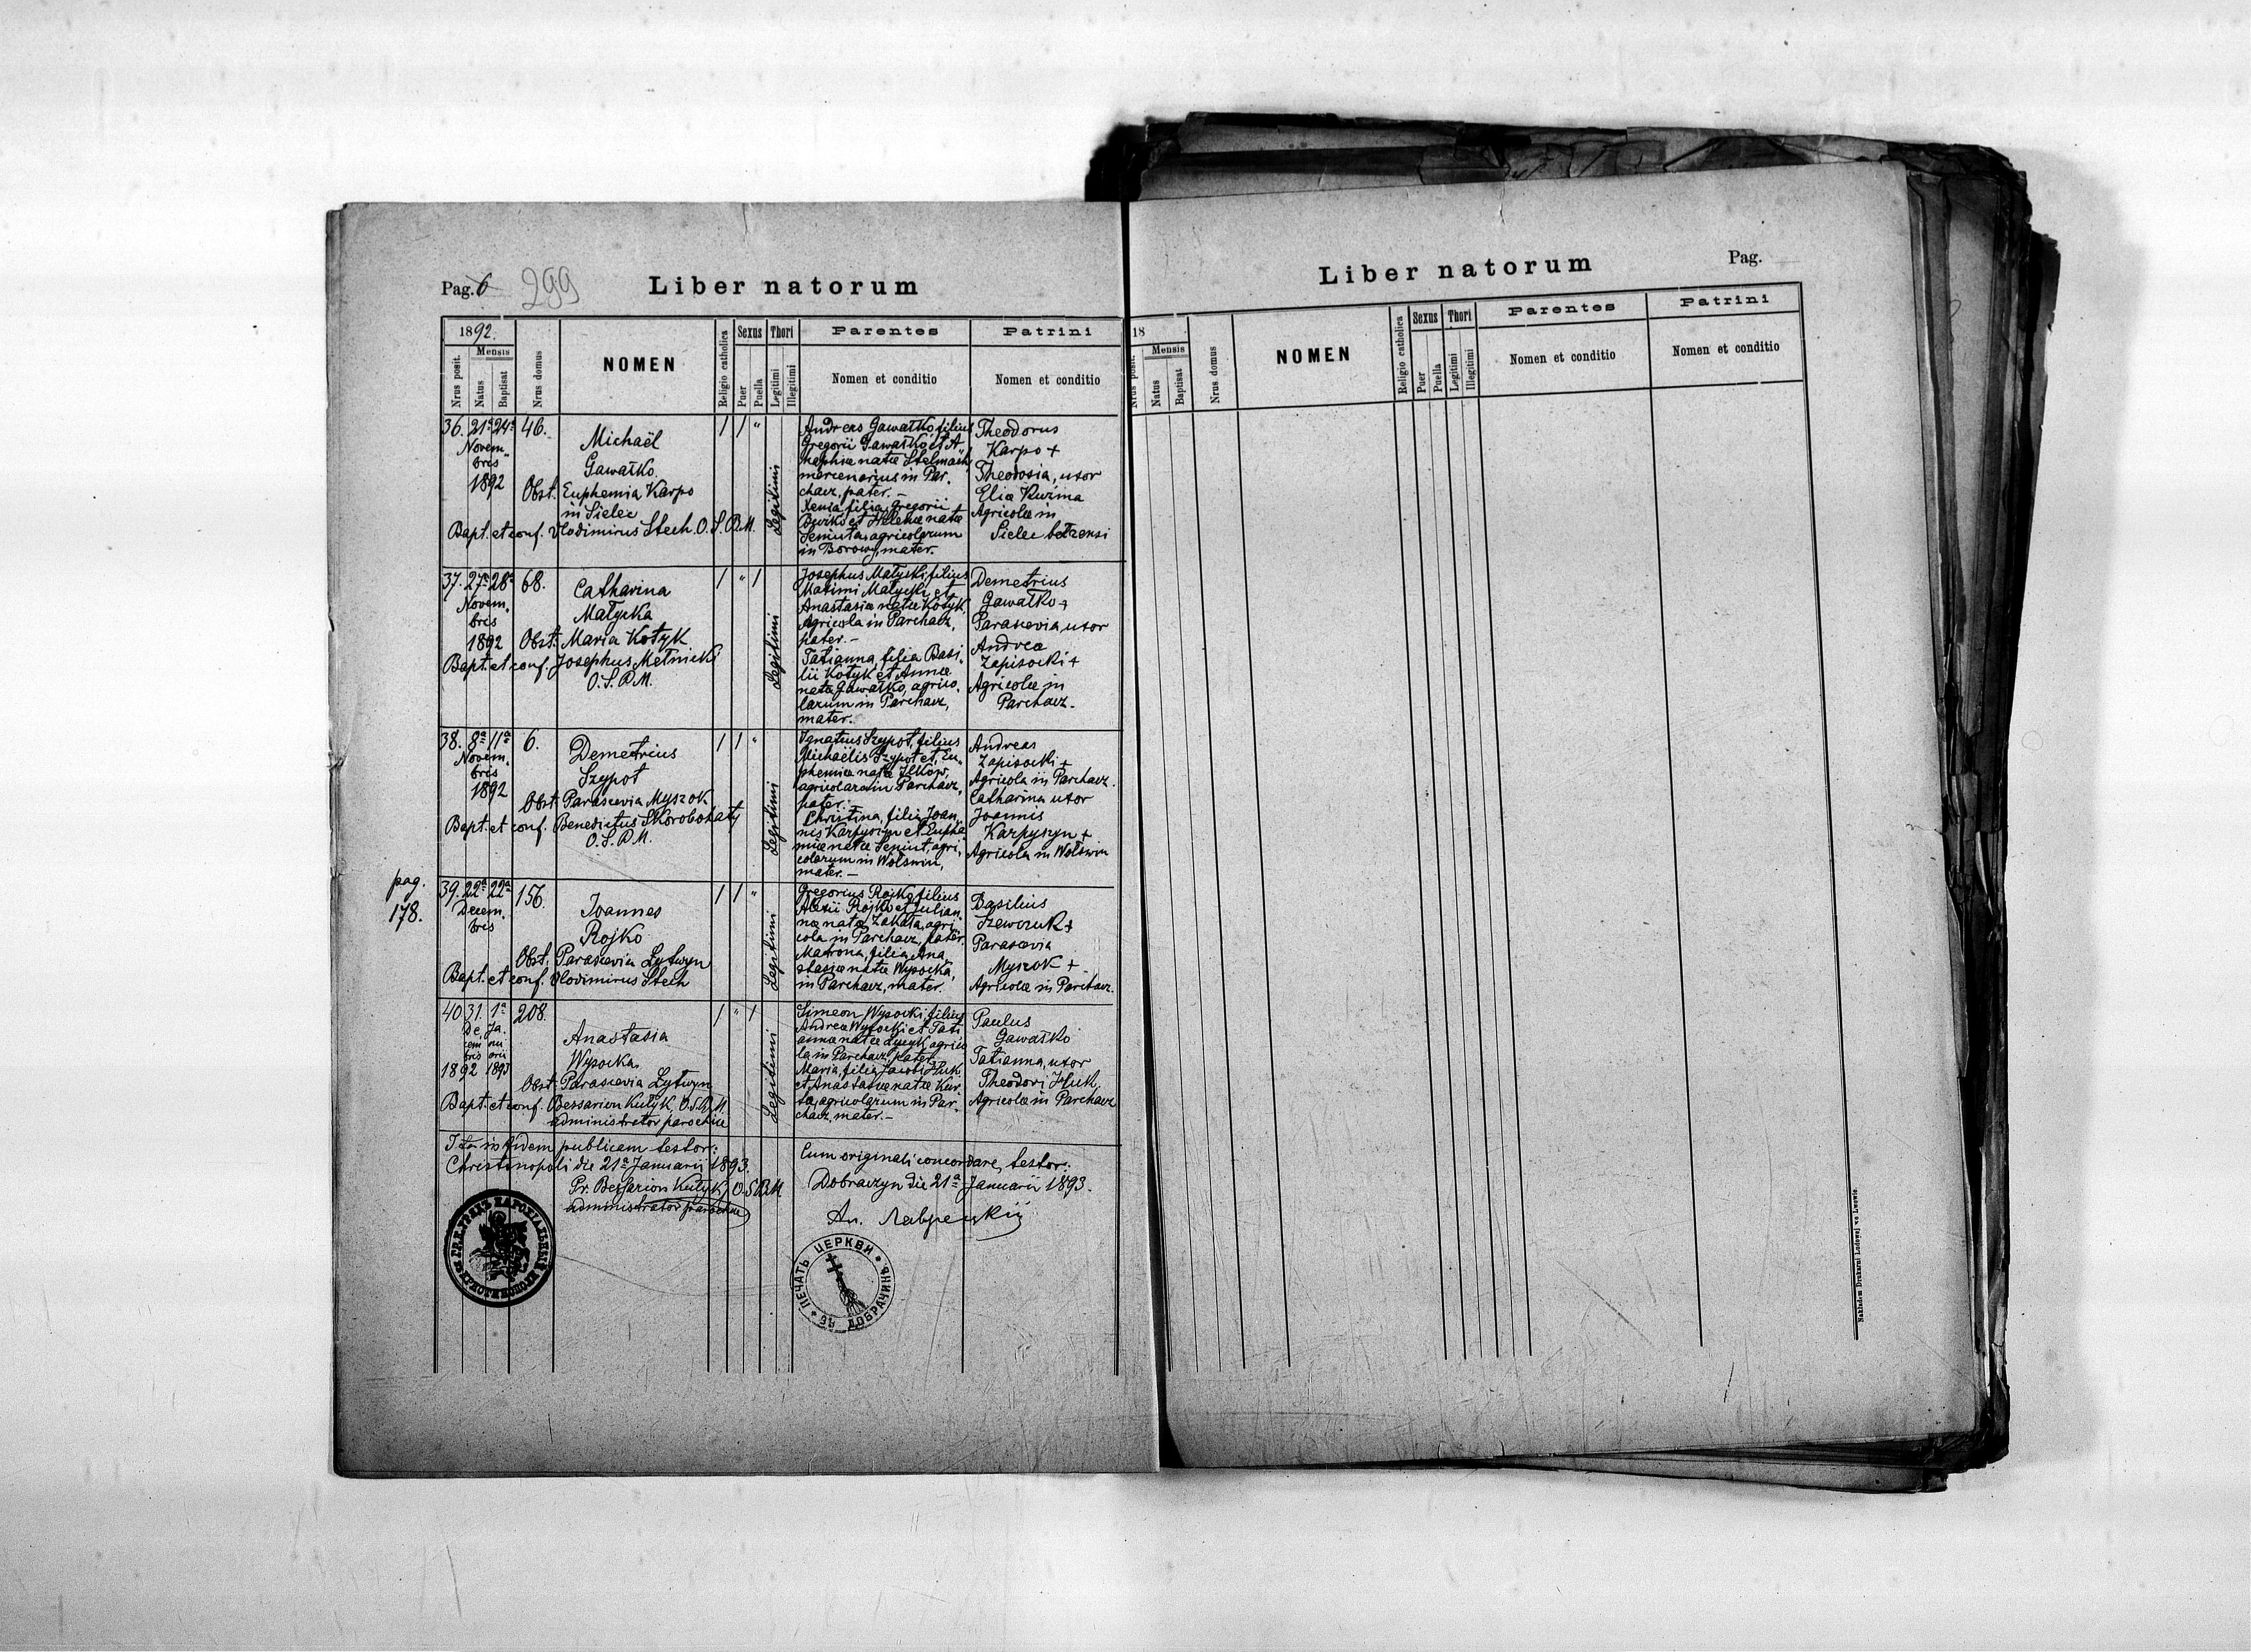 Pag. 6 299 Liber natorum
1892.
Nrus posit.
Mensis
Natus
Baptisat
Nrus domus
NOMEN
Religio catholica
Sexus
Puer
Puella
Thori
Legitimi
Illegitimi
Parentes
Nomen et conditio
Patrini
Nomen et conditio
36. 21ª 24ª 46.
Novem-
bris
1892
Michaël
Gawałko
Obst. Euphemia Karpo
in Sielec
Bapt. et conf. Vlodimirus Stech O. S. B. M.
1 1 "
Legitimi
Andreas Gawałko filius
Gregorii Gawałko et A
thaphiæ natæ Stelmach,
mercenarius in Par-
chacz, pater. –
Xenia filia Gregorii
et Helenæ natæ
agricolarum
in Borowy, mater.
Theodorus
Karpo +
Theodosia, uxor
Eliæ Kuzma
Agricolæ in
Sielec bełzensi
37. 27ª 28ª 68.
Novem-
bris
1892
Catharina
Małycka
Obst. Maria Kotyk
Bapt. et conf. Josephus Metnicki
O. S. B. M.
1 " 1
Legitimi
Josephus Małycki, filius
Maximi Małycki et
Anastasiæ natæ Kotyk,
Agricola in Parchacz,
pater. –
Tatianna, filia Basi-
lii Kotyk et Annæ
natæ Gawałko, agrico-
larum in Parchacz,
mater.
Demetrius
Gawałko +
Parascevia uxor
Andreæ
Zapisocki +
Agricolæ in
Parchacz.
38. 8ª 11ª 6.
Novem-
bris
1892
Demetrius
Szypot
Obst. Parascevia Myszok
Bapt. et conf. Benedictus Skorobohaty
O. S. B. M.
1 1 "
Legitimi
Ignatius Szypot, filius
Michaëlis Szypot et Eu-
phemiæ natæ Ilków,
agricola in Parchacz,
pater. –
Christina, filia Joan-
nis Karpyszyn et Euphe-
miæ natæ Seniut, agri-
colarum in Wolswin,
mater. –
Andreas
Zapisocki +
Agricola in Parchacz.
Catharina uxor
Joannis
Karpyszyn +
Agricola in Wolswin
pag.
178.
39. 22ª 22ª 156.
Decem-
bris
Joannes
Rojko
Obst. Parascevia Lytwyn
Bapt. et conf. Vlodimirus Stech
1 1 "
Legitimi
Gregorius Rojko, filius
Alexii Rojko et Julian-
næ natæ Zakała, agri-
cola in Parchacz, pater.
Matrona, filia Ana-
stasiæ natæ Wysocka,
in Parchacz, mater.
Basilius
Szewczuk +
Parascevia
Myszok +
Agricolæ in Parchacz.
40 31. 1ª 208.
De- Ja-
cem nu
bris arii
1892 1893
Anastasia
Wysocka
Obst. Parascevia Lytwyn
Bapt. et conf. Bessarion Kutyk, O.S.B.M.
administrator parochiæ
1 " 1
Legitimi
Simeon Wysocki, filius
Andreæ Wysocki et Tati
annæ natæ agrico
la in Parchacz, pater
Maria, filia Jacobi Huk
et Anastasiæ natæ Kur-
ta, agricolarum in Par-
chacz, mater. –
Paulus
Gawałko
Tatianna, uxor
Theodori Huk,
Agricolæ in Parchacz
Ita in fidem publicam testor:
Christinopoli die 21ª Januarii 1893.
Pr. Bessarion Kutyk, O.S.B.M
administrator parochiæ
Cum originali concordare, testor:
Dobraczyn die 21ª Januarii 1893.
ПЕЧАТЬ ЦЕРКВИ ВЪ ДОБРАЧИНЪ
Liber natorum Pag.
18
Nrus posit.
Mensis
Natus
Baptisat
Nrus domus
NOMEN
Religio catholica
Sexus
Puer
Puella
Thori
Legitimi
Illegitimi
Parentes
Nomen et conditio
Patrini
Nomen et conditio
Nakładem Drukarni Ludowej we Lwowie.